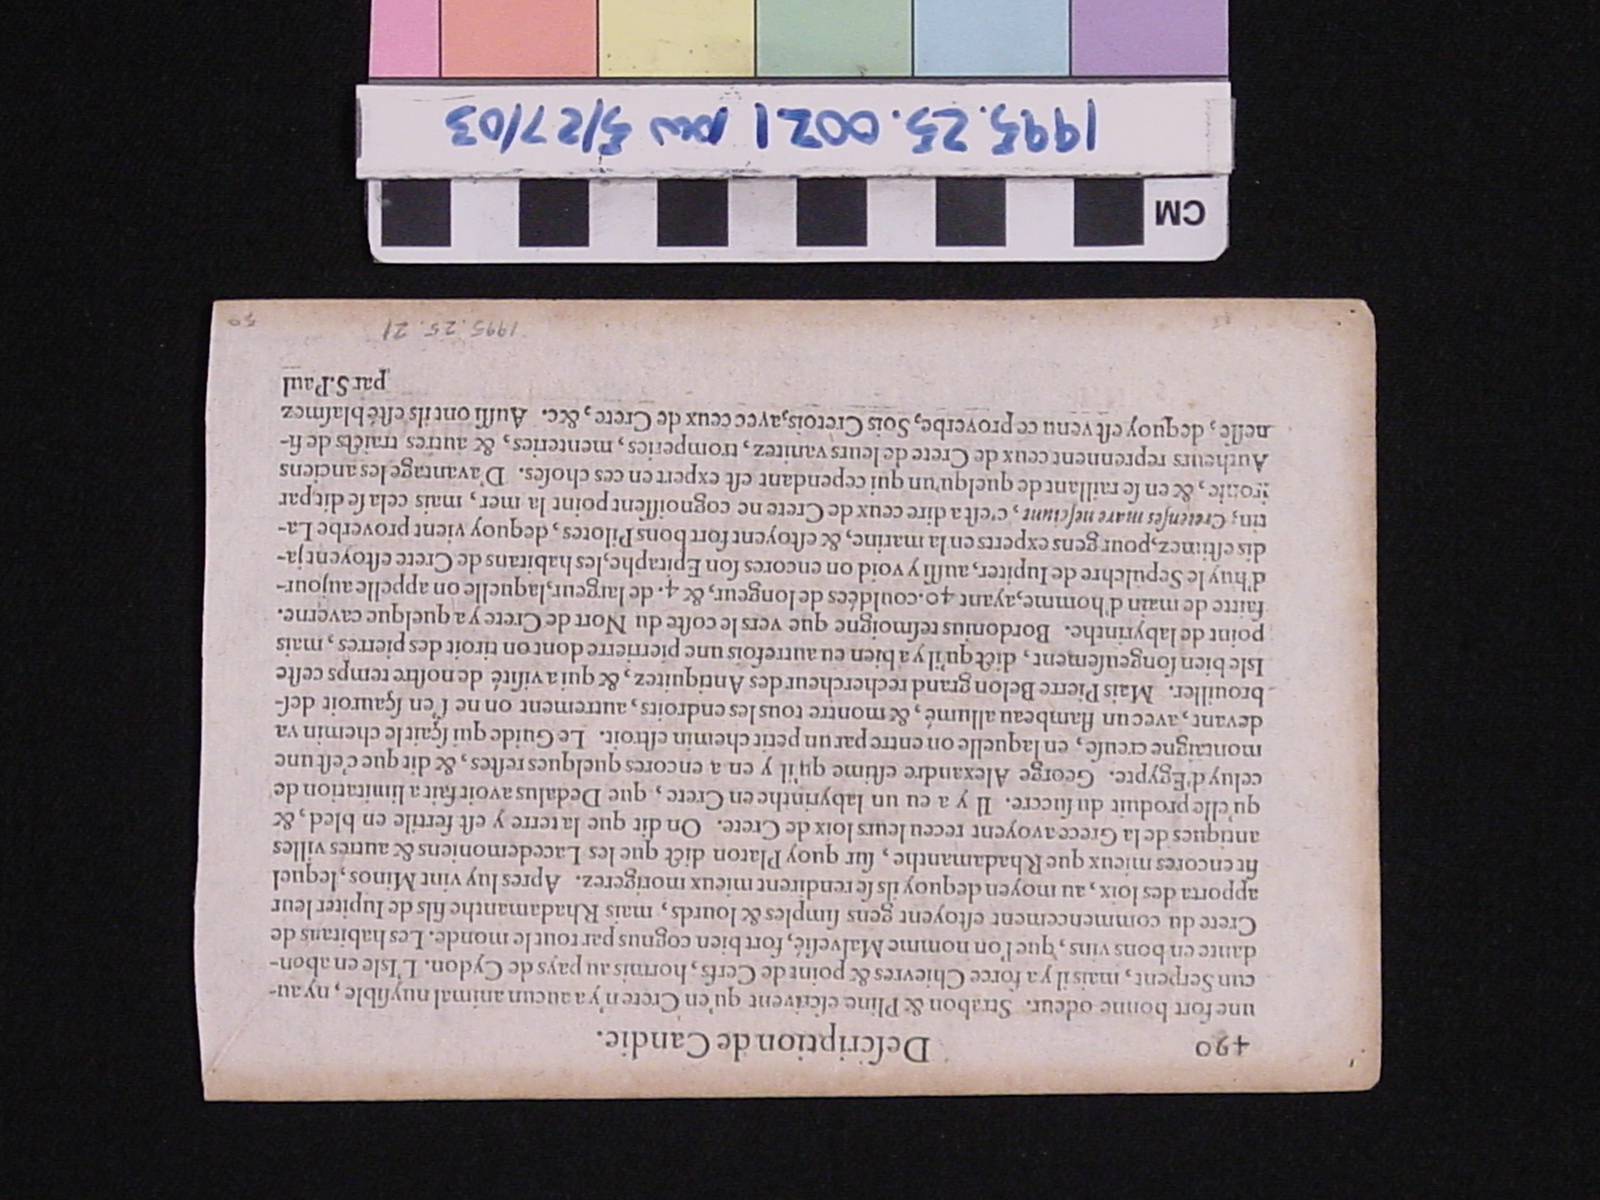 420
Deſcription de Candie.
une fort bonne odeur. Strabon & Pline eſcrivent qu'en Crete n'y a aucun animal nuyſible, ny au-
cun Serpent, mais il y a force Chievres & point de Cerfs, hormis au pays de Cydon. L'Isle en abon-
dante en bons vins, que l'on nomme Malveſié, fort bien cognus par tout le monde. Les habitans de
Crete du commencement eſtoyent gens ſimples & lourds, mais Rhadamanthe fils de Iupiter leur
apporta des loix, au moyen dequoy ils ſe rendirent mieux morigerez. Apres luy vint Minos, lequel
fit encores mieux que Rhadamanthe, ſur quoy Platon dict que les Lacedemoniens & autres villes
antiques de la Grece avoyent receu leurs loix de Crete. On dit que la terre y eſt fertile en bled, &
qu'elle produit du ſuccre. Il y a eu un labyrinthe en Crete, que Dedalus avoit fait a limitation de
celuy d'Egypte. George Alexandre eſtime qu'il y en a encores quelques reſtes, & dit que c'eſt une
montaigne creuſe, en laquelle on entre par un petit chemin eſtroit. Le Guide qui ſçait le chemin va
devant, avec un flambeau allumé, & montre tous les endroits, autrement on ne ſ'en ſçauroit deſ-
brouiller. Mais Pierre Belon grand rechercheur des Antiquitez, & qui a viſité de noſtre temps ceſte
Isle bien ſongeuſement, dict qu'il y a bien eu autrefois une pierrierre dont on tiroit des pierres, mais
point de labyrinthe. Bordonius teſmoigne que vers le coſte du Nort de Crete y a quelque caverne.
faitte de main d'homme, ayant 40. couldées de longeur, & 4. de largeur, laquelle on appelle aujour-
d'huy le Sepulchre de Iupiter, auſſi y void on encores ſon Epitaphe, les habitans de Crete eſtoyent ja-
dis eſtimez, pour gens experts en la marine, & eſtoyent fort bons Pilotes, dequoy vient proverbe La-
tin; Cretenſes mare neſciunt, c'eſt a dire ceux de Crete ne cognoiſſent point la mer, mais cela ſe dit par
ironie, & en ſe raillant de quelqu'un qui cependant eſt expert en ces choſes. D'avantage les anciens
Autheurs reprennent ceux de Crete de leurs vanitez, tromperies, menteries, & autres traicts de fi-
neſſe, dequoy eſt venu ce proverbe, Sois Cretois, avec ceux de Crete, &c. Auſſi ont ils eſté blaſmez
par S. Paul
1995.25.21
50
CM
1995.25.0021 pw 5/27/03